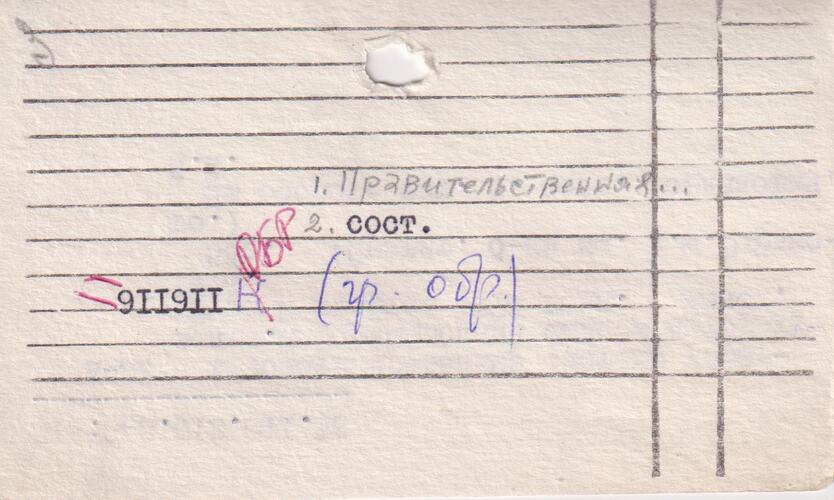 1. Правительственная...
2. сост.
ОБР
9II9II Н (гр. обр.)